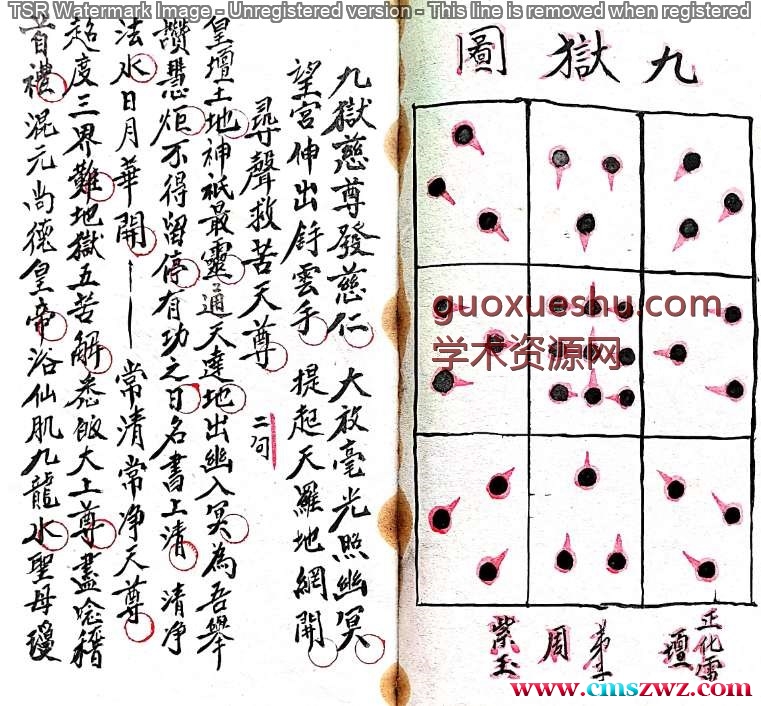 TSR Watermark Image - Unregistered version - This line is removed when registered
九獄圖
guoxueshu.com
学术资源网
正化雷壇
弟子
周紫玉
www.cmszwz.com
九獄慈尊發慈仁 大放毫光照幽冥
望宮伸出雲手 提起天羅地網開
尋聲救苦天尊 二句
皇壇土地神祇最靈通天達地出幽入冥為吾舉
讚慧炬不得留停有功之日名書上清 清净
法水日月華開 常清常净天尊
超度三界難地獄五苦解悉皈太上尊盡念稽
首禮混元尚德皇帝浴仙肌九龍水聖母瓊